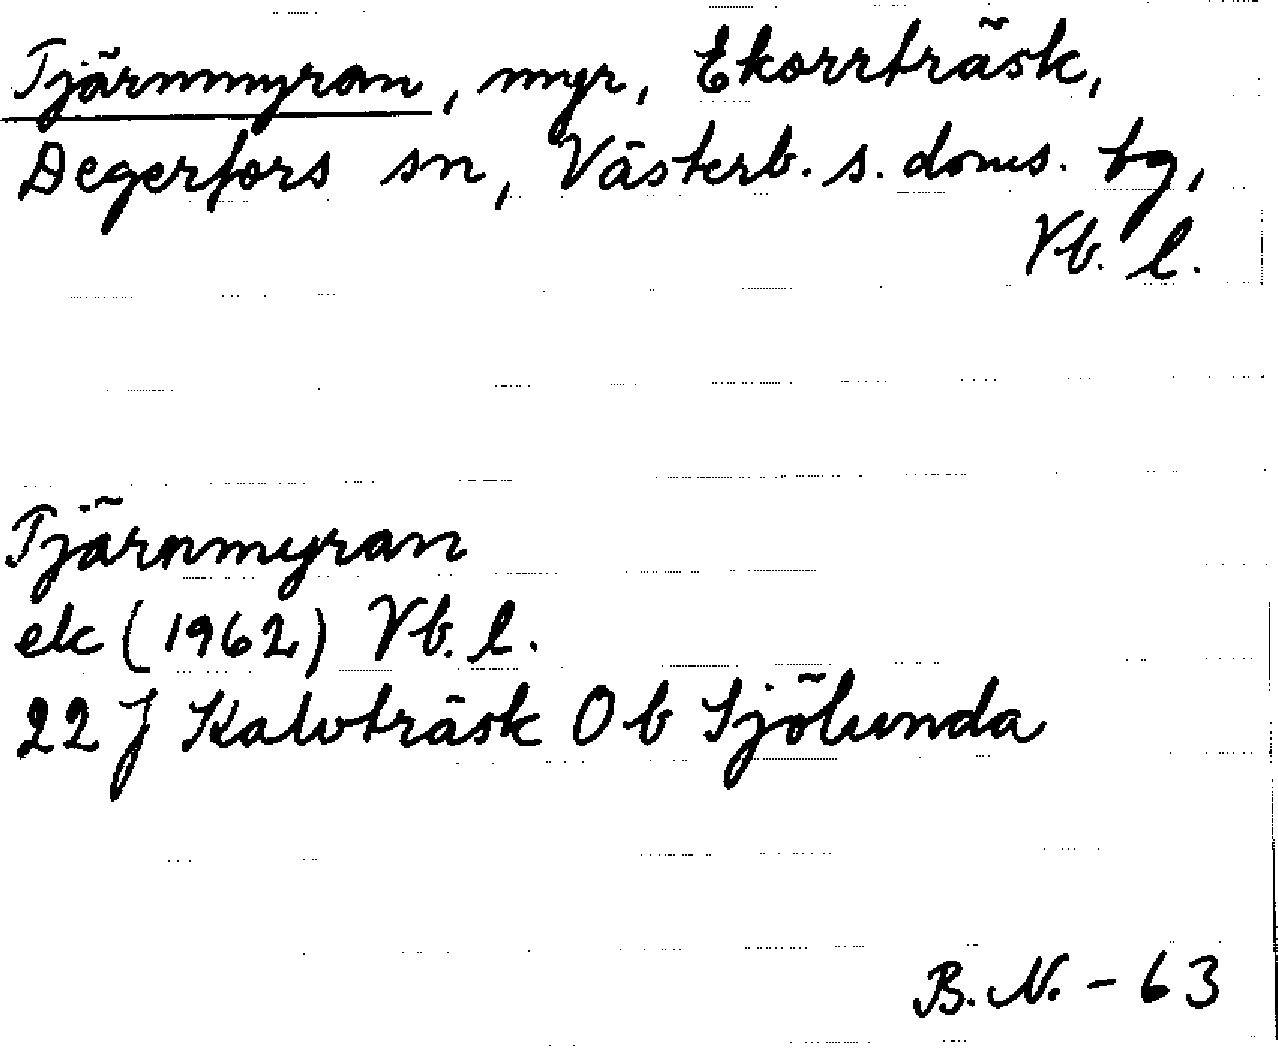 Tjärnmyran, myr, Ekorrträsk,
Degerfors sn, Västerb. s. doms. tg,
Vb. l.
Tjärnmyran
ek (1962) Vb. l.
22 J Kalvträsk O b Sjölunda
B. N. - 63